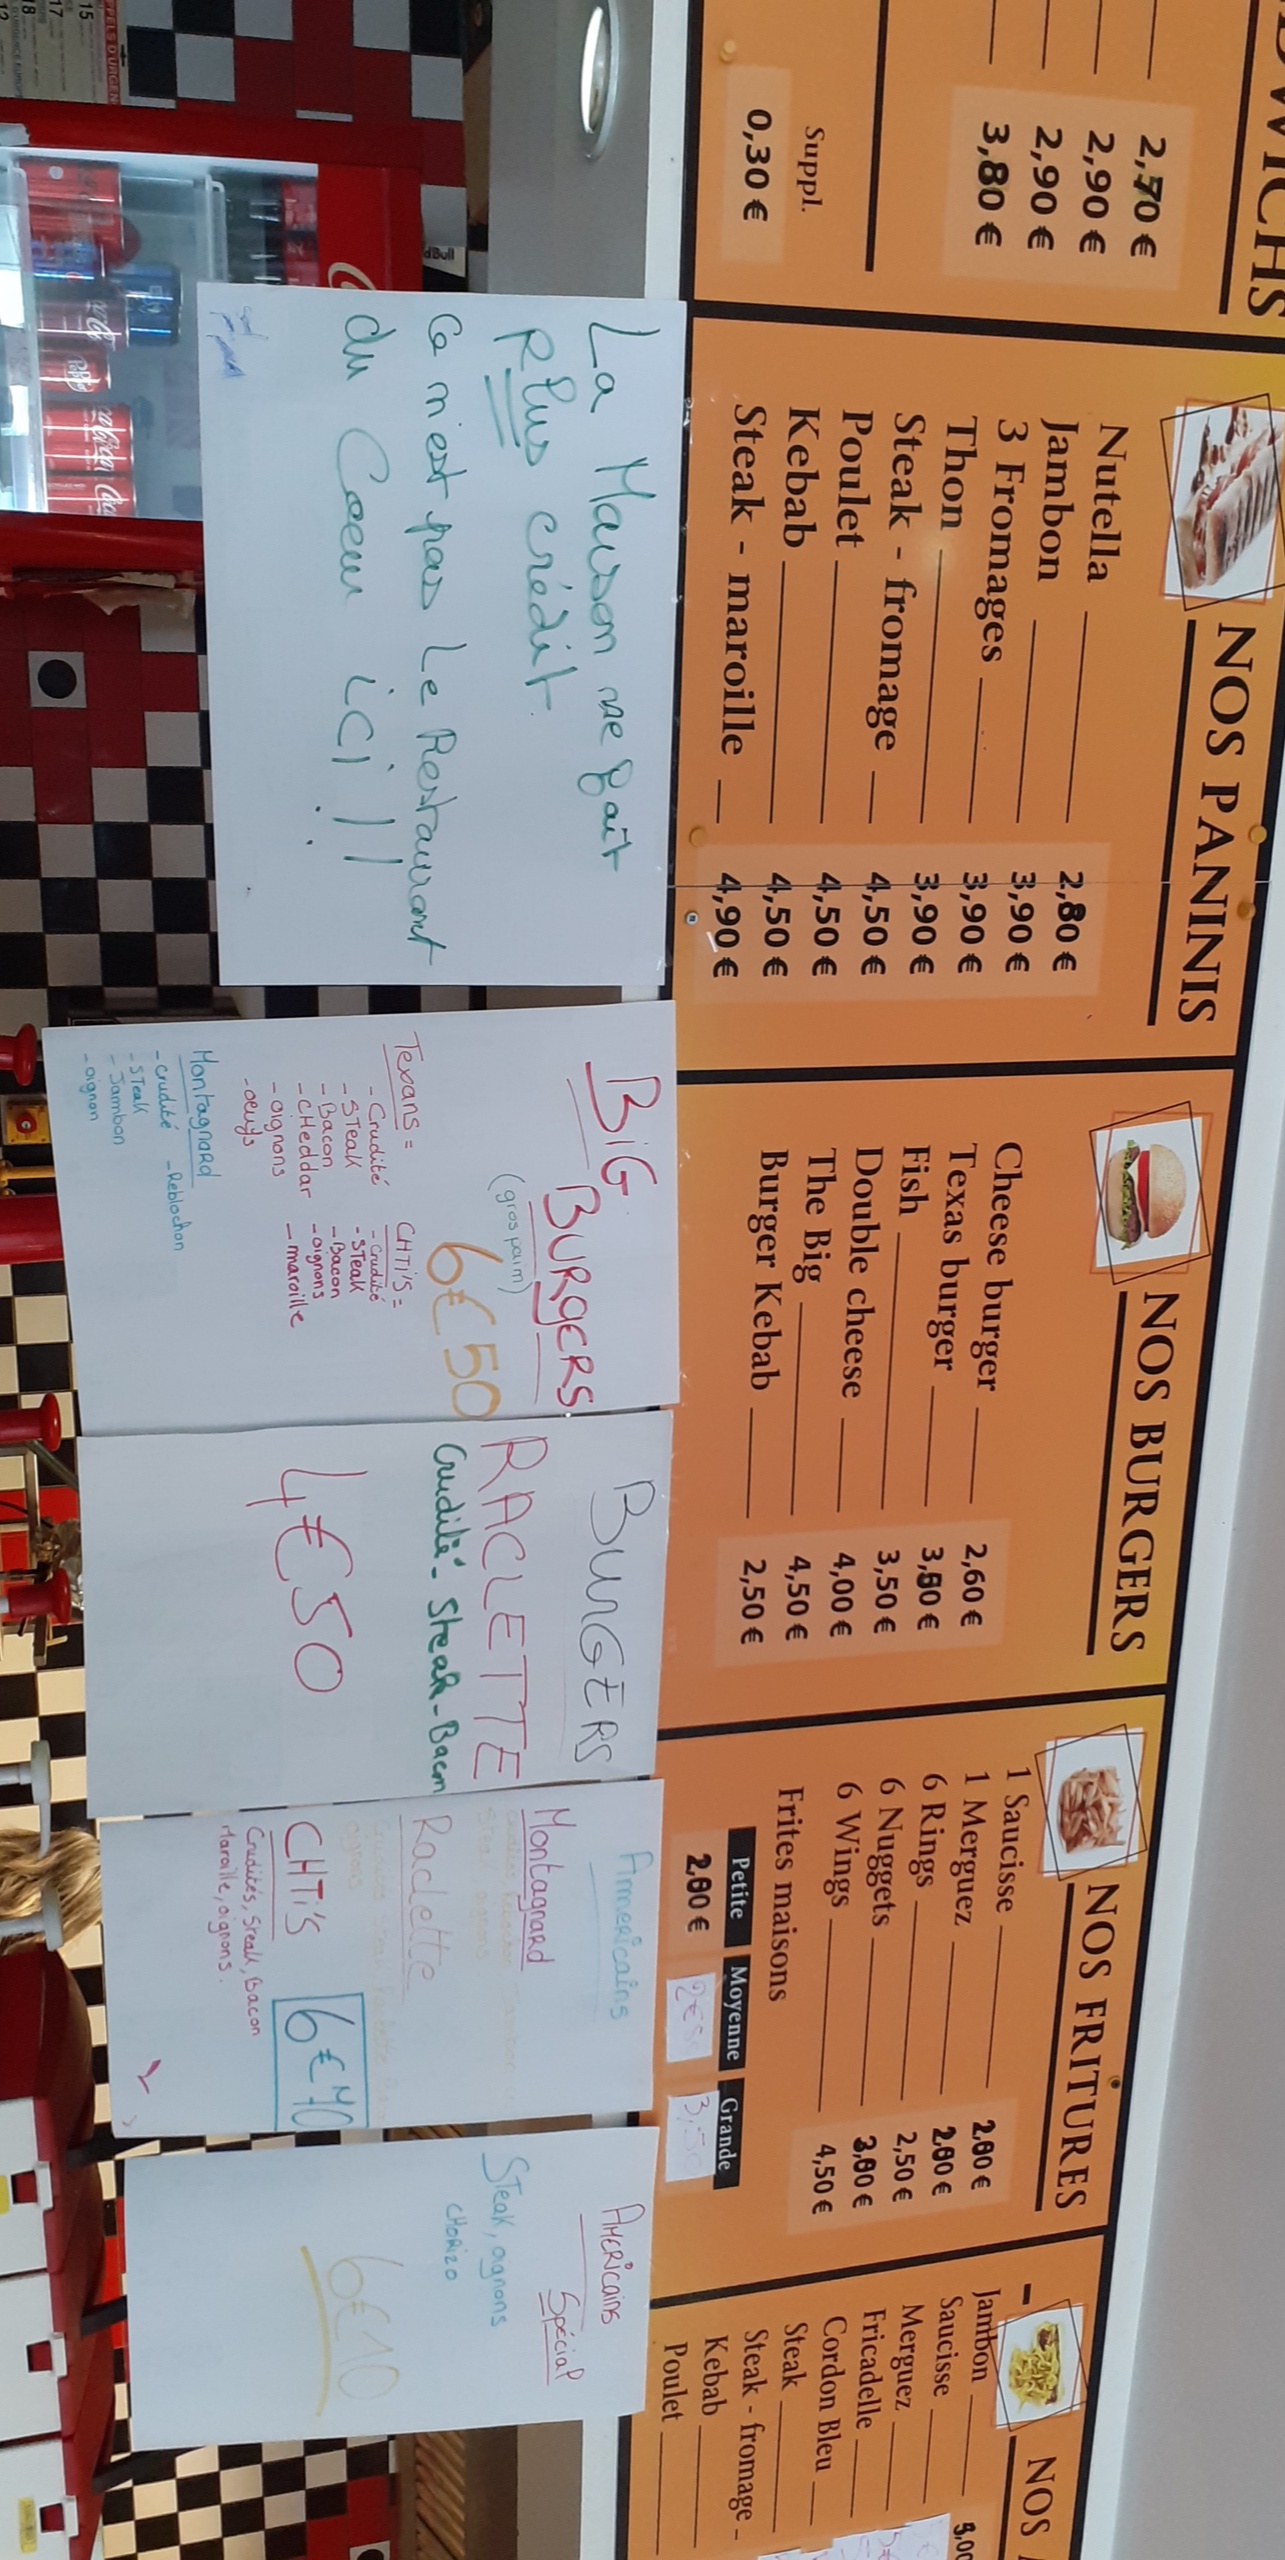 2,70 €
2,90 €
2,90 €
3,80 €
Suppl.
0,30 €
NOS PANINIS
Nutella 2,80 €
Jambon 3,90 €
3 Fromages 3,90 €
Thon 3,90 €
Steak - fromage 4,50 €
Poulet 4,50 €
Kebab 4,50 €
Steak - maroille 4,90 €
NOS BURGERS
Cheese burger 2,60 €
Texas burger 3,80 €
Fish 3,50 €
Double cheese 4,00 €
The Big 4,50 €
Burger Kebab 2,50 €
NOS FRITURES
1 Saucisse 2,00 €
1 Merguez 2,00 €
6 Rings 2,50 €
6 Nuggets 3,00 €
6 Wings 4,50 €
Frites maisons
Petite Moyenne Grande
2,00 €
NOS
Jambon
Saucisse
Merguez
Fricadelle
Cordon Bleu
Steak
Steak - fromage -
Kebab
Poulet
La Maison ne fait
Plus crédit.
Ce n'est pas Le Restaurant
du Coeur ici !!
BiG BURGERS
(gros pain)
6€50
Texans =
- Crudité
- STeak
- Bacon
- CHeddar
- oignons
- oeufs
CHTi'S =
- Crudité
- STeak
- Bacon
- oignons
- maroille
Montagnard
- crudité - Reblochon
- STeak
- Jambon
- oignon
BURGERS
RACLETTE
Crudité - Steak - Bacon
4€50
Americains
Montagnard
Raclette
CHTi'S
Crudités, Steak, Bacon
Maroille, oignons.
6€40
AMERICAINS
Spécial
STeak, ognons
CHORIZO
6€10